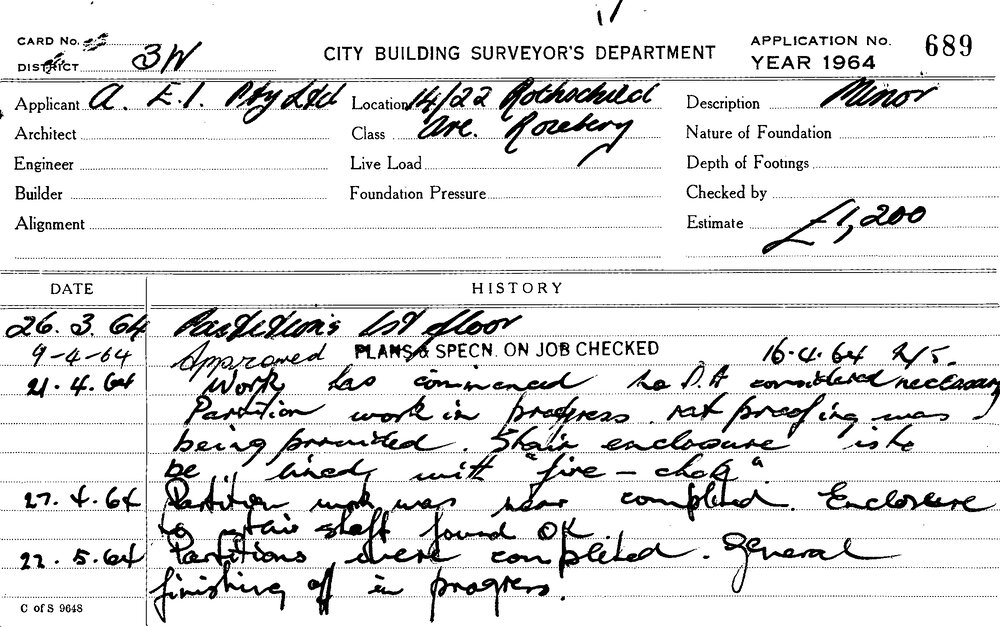 CARD No.
CITY BUILDING SURVEYOR'S DEPARTMENT
APPLICATION No. 689
DISTRICT 3W
YEAR 1964
Applicant A. E.I. Pty Ltd Location 14/22 Rothschild Description Minor
Architect Class Ave. Rosebery Nature of Foundation
Engineer Live Load Depth of Footings
Builder Foundation Pressure Checked by
Alignment Estimate £1,200
DATE HISTORY
26. 3. 64 Partitions 1st floor
9-4-64 Approved PLANS & SPECN. ON JOB CHECKED 16.4.64
21. 4. 64 Work has commenced no D.A considered necessary
Partition work in progress rat proofing was
being provided. Stair enclosure is to
be lined with "fire-chek"
27. 4. 64 Partition work was near completed. Enclosure
to stair shaft found OK.
22. 5. 64 Partitions were completed. General
finishing off in progress.
C of S 9648